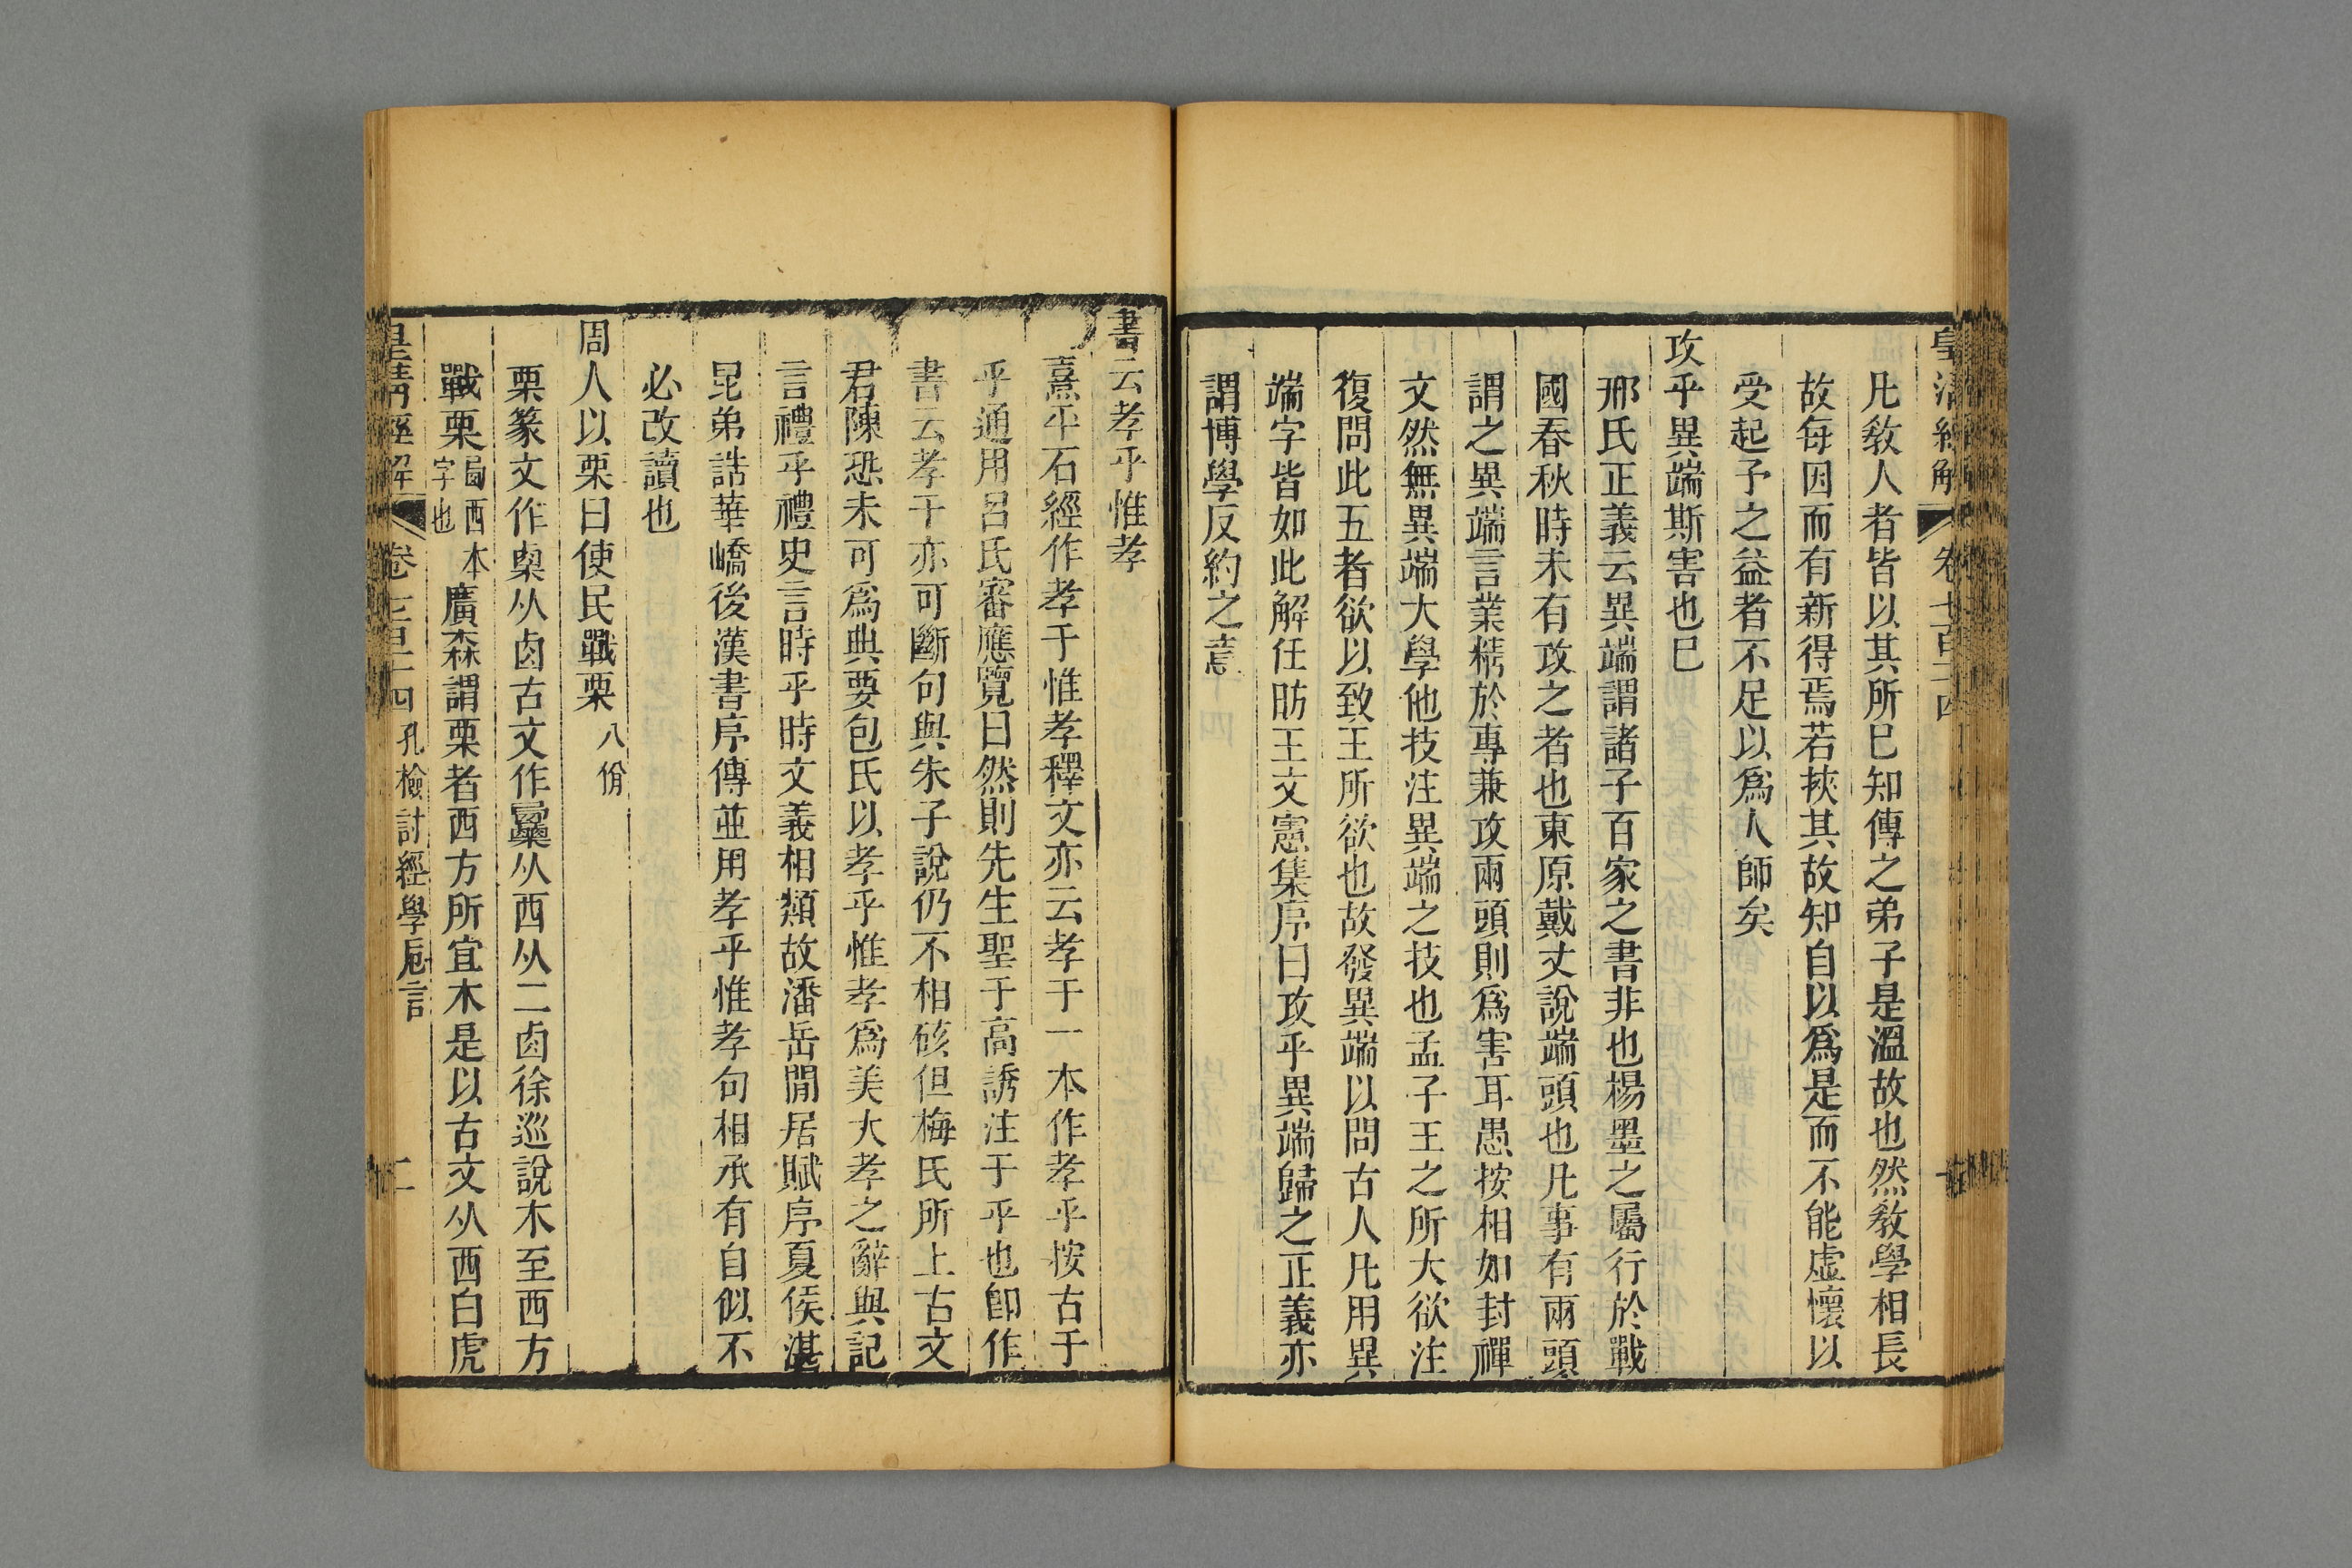 皇清經解 卷七百十四
凡敎人者皆以其所巳知傳之弟子是溫故也然敎學相長
故每因而有新得焉若挾其故知自以爲是而不能虛懷以
受起予之益者不足以爲人師矣
攻乎異端斯害也巳
邢氏正義云異端謂諸子百家之書非也楊墨之屬行於戰
國春秋時未有攻之者也東原戴丈說端頭也凡事有兩頭
謂之異端言業精於專兼攻兩頭則爲害耳愚按相如封禪
文然無異端大學他技注異端之技也孟子王之所大欲注
復問此五者欲以致王所欲也故發異端以問古人凡用異
端字皆如此解任昉王文憲集序曰攻乎異端歸之正義亦
謂博學反約之意
書云孝乎惟孝
熹平石經作孝于惟孝釋文亦云孝于一本作孝乎按古于
乎通用呂氏審應覽曰然則先生聖于高誘注于乎也卽作
書云孝于亦可斷句與朱子說仍不相硋但梅氏所上古文
君陳恐未可爲典要包氏以孝乎惟孝爲美大孝之辭與記
言禮乎禮史言時乎時文義相類故潘岳閒居賦序夏侯湛
昆弟誥華嶠後漢書序傳並用孝乎惟孝句相承有自似不
必改讀也
周人以栗曰使民戰栗 八佾
栗篆文作㮚从卤古文作𣡷从西从二卤徐巡說木至西方
戰栗 卥西本字也 廣森謂栗者西方所宜木是以古文从西白虎
皇清經解 卷七百十四 孔檢討經學巵言 二